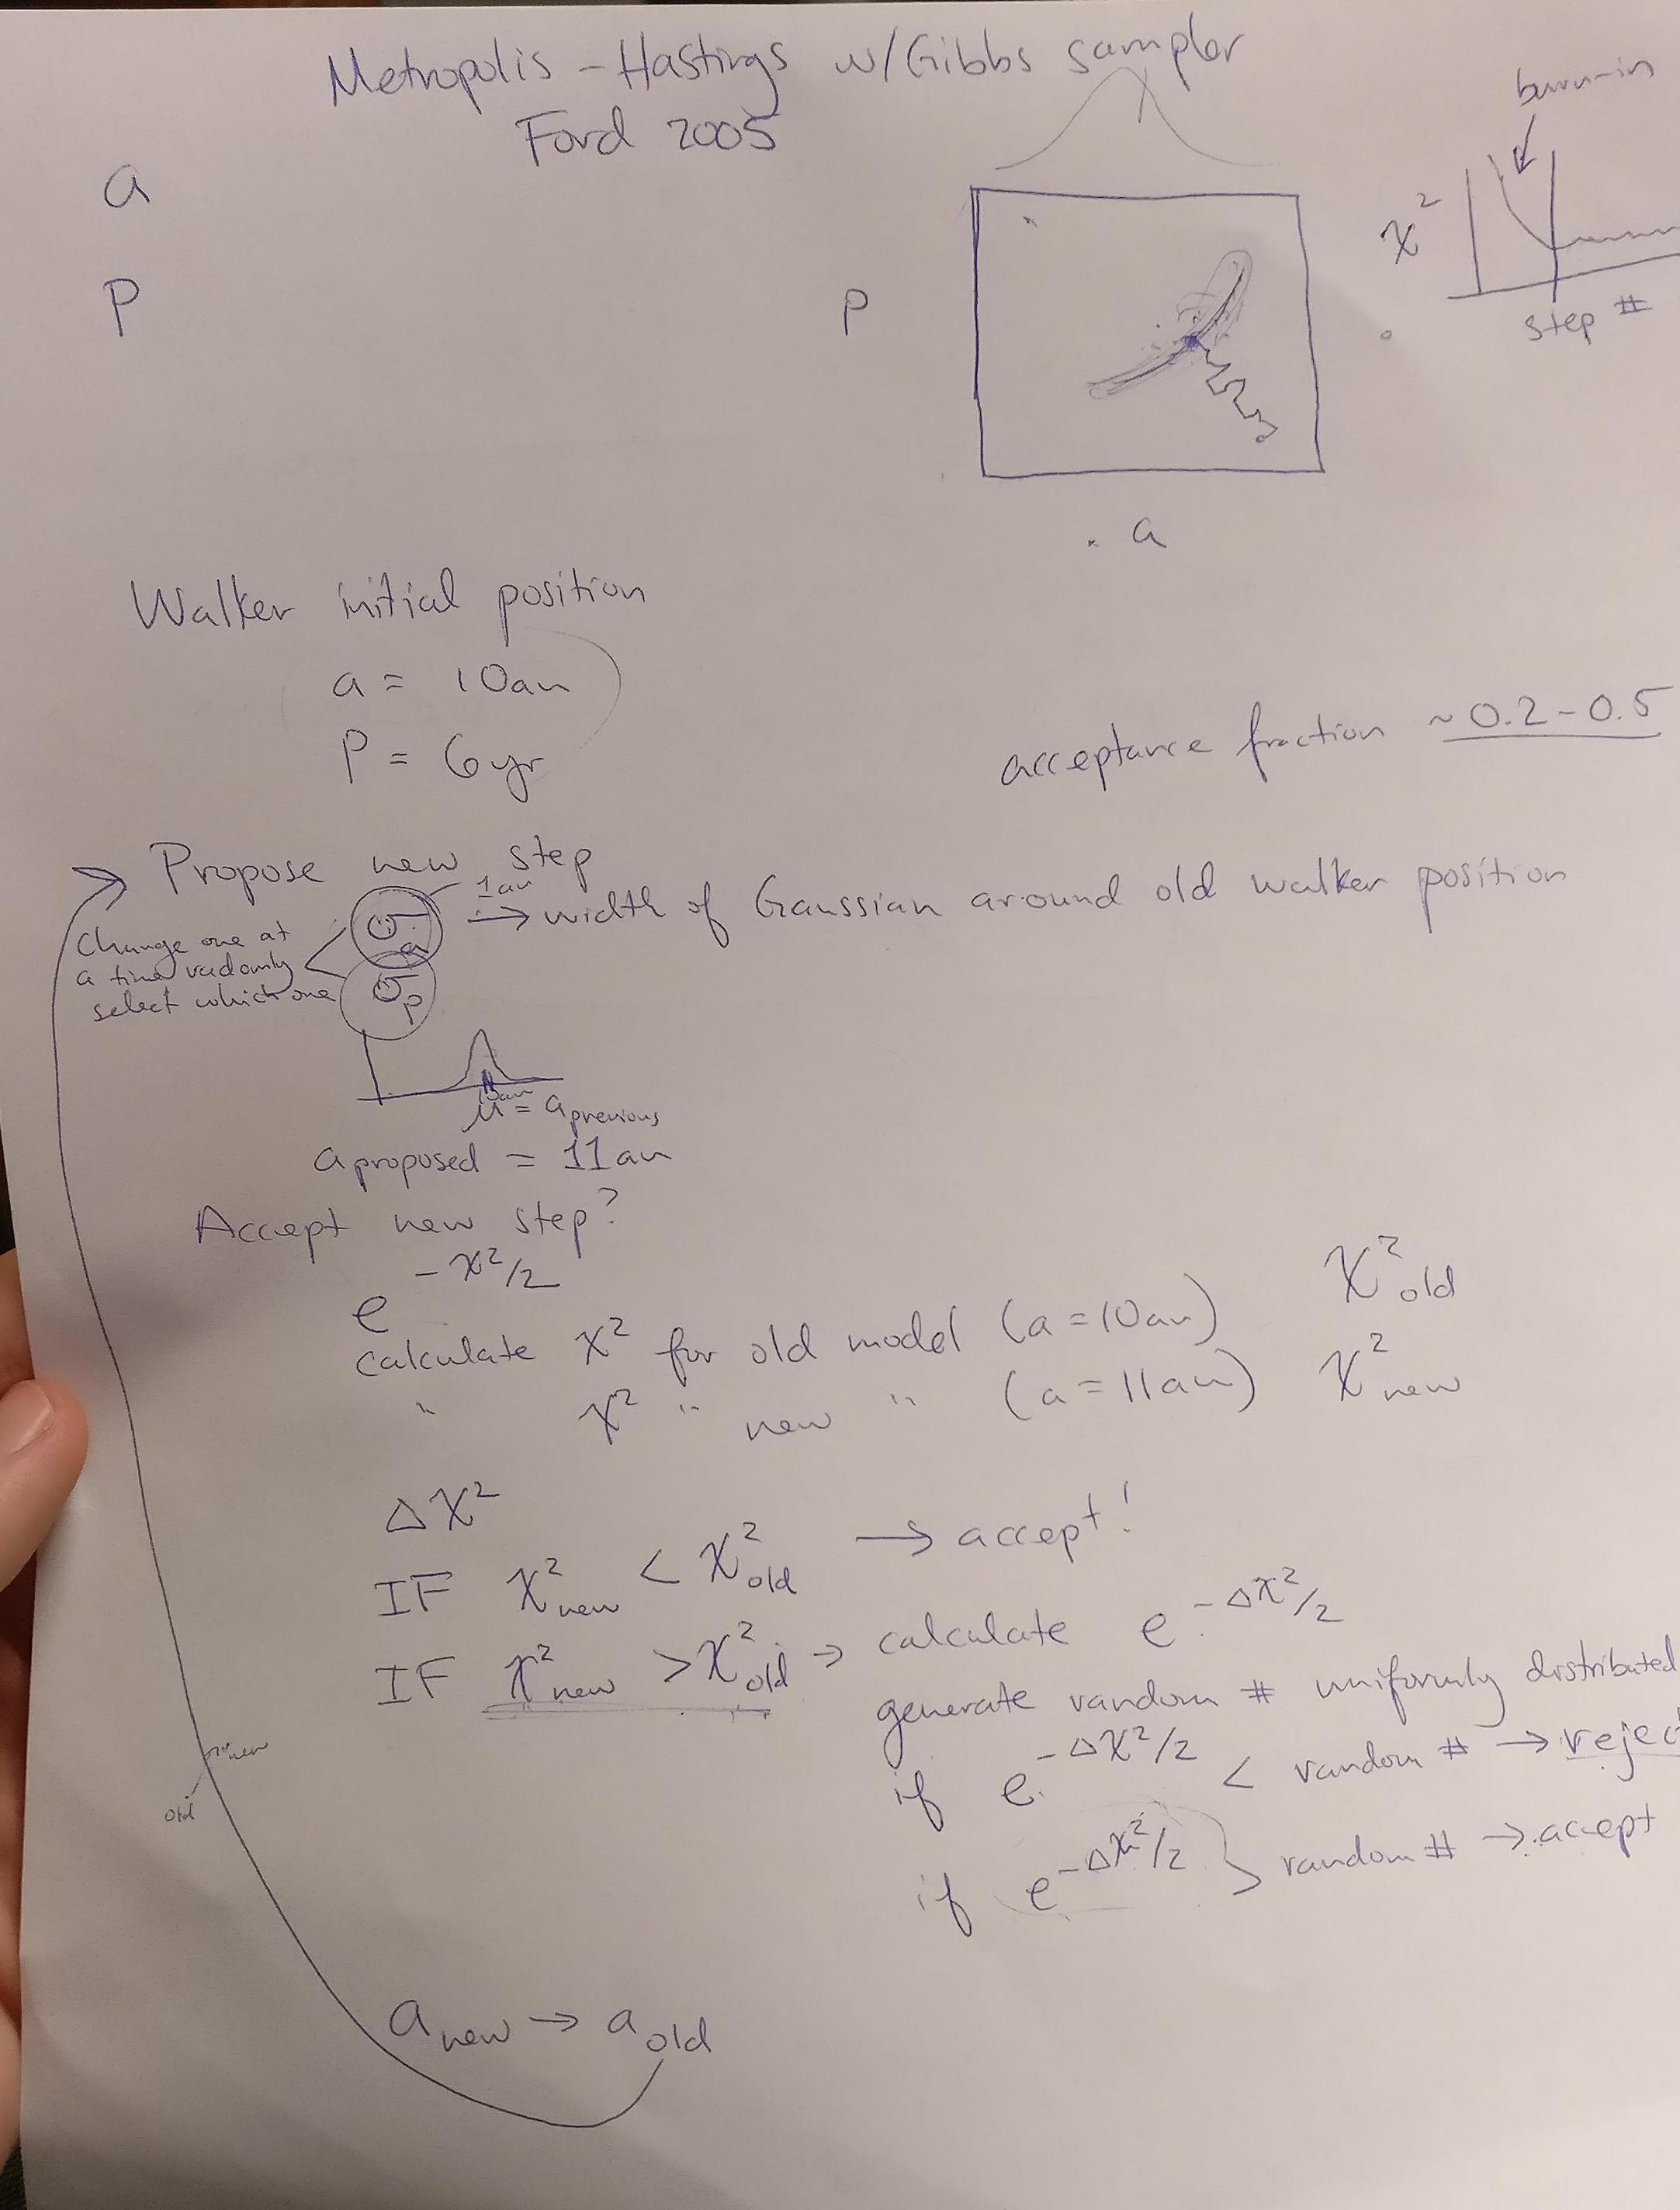 Metropolis - Hastings w/Gibbs sampler
Ford 2005
burn-in
a
P
P
χ²
step #
a
Walker initial position
a = 10au
P = 6yr
acceptance fraction ~ 0.2 - 0.5
Propose new step
1au
σa → width of Gaussian around old walker position
Change one at
a time radomly
select which one
σp
10au
μ = a previous
a proposed = 11au
Accept new step?
e^-χ²/2
calculate χ² for old model (a = 10au) χ²old
" χ² " new " (a = 11au) χ²new
Δχ²
IF χ²new < χ²old → accept!
IF χ²new > χ²old → calculate e^-Δχ²/2
generate random # uniformly distributed
if e^-Δχ²/2 < random # → rejec
if e^-Δχ²/2 > random # → accept
new
old
a new → a old